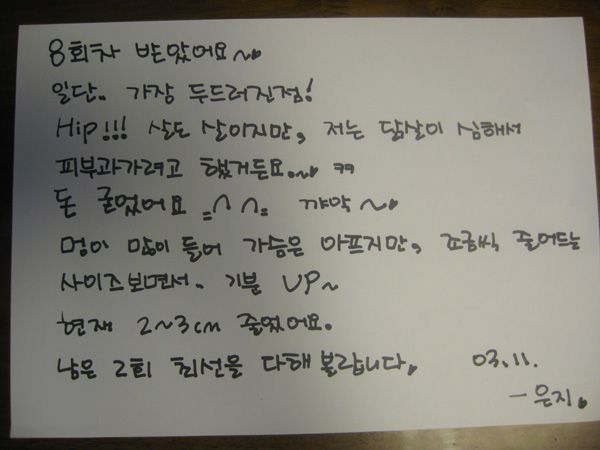 8회차 받았어요~
일단.. 가장 두드러진점!
Hip!!! 살도 살이지만, 저는 닭살이 심해서
피부과가려고 했거든요..~ ㅋㅋ
돈 굳었어요 =^^= 꺄악~
멍이 많이 들어 가슴은 아프지만, 조금씩 줄어드는
사이즈보면서.. 기분 UP~
현재 2~3cm 줄었어요.
남은 2회 최선을 다해볼랍니다.   03.11.
- 은지.